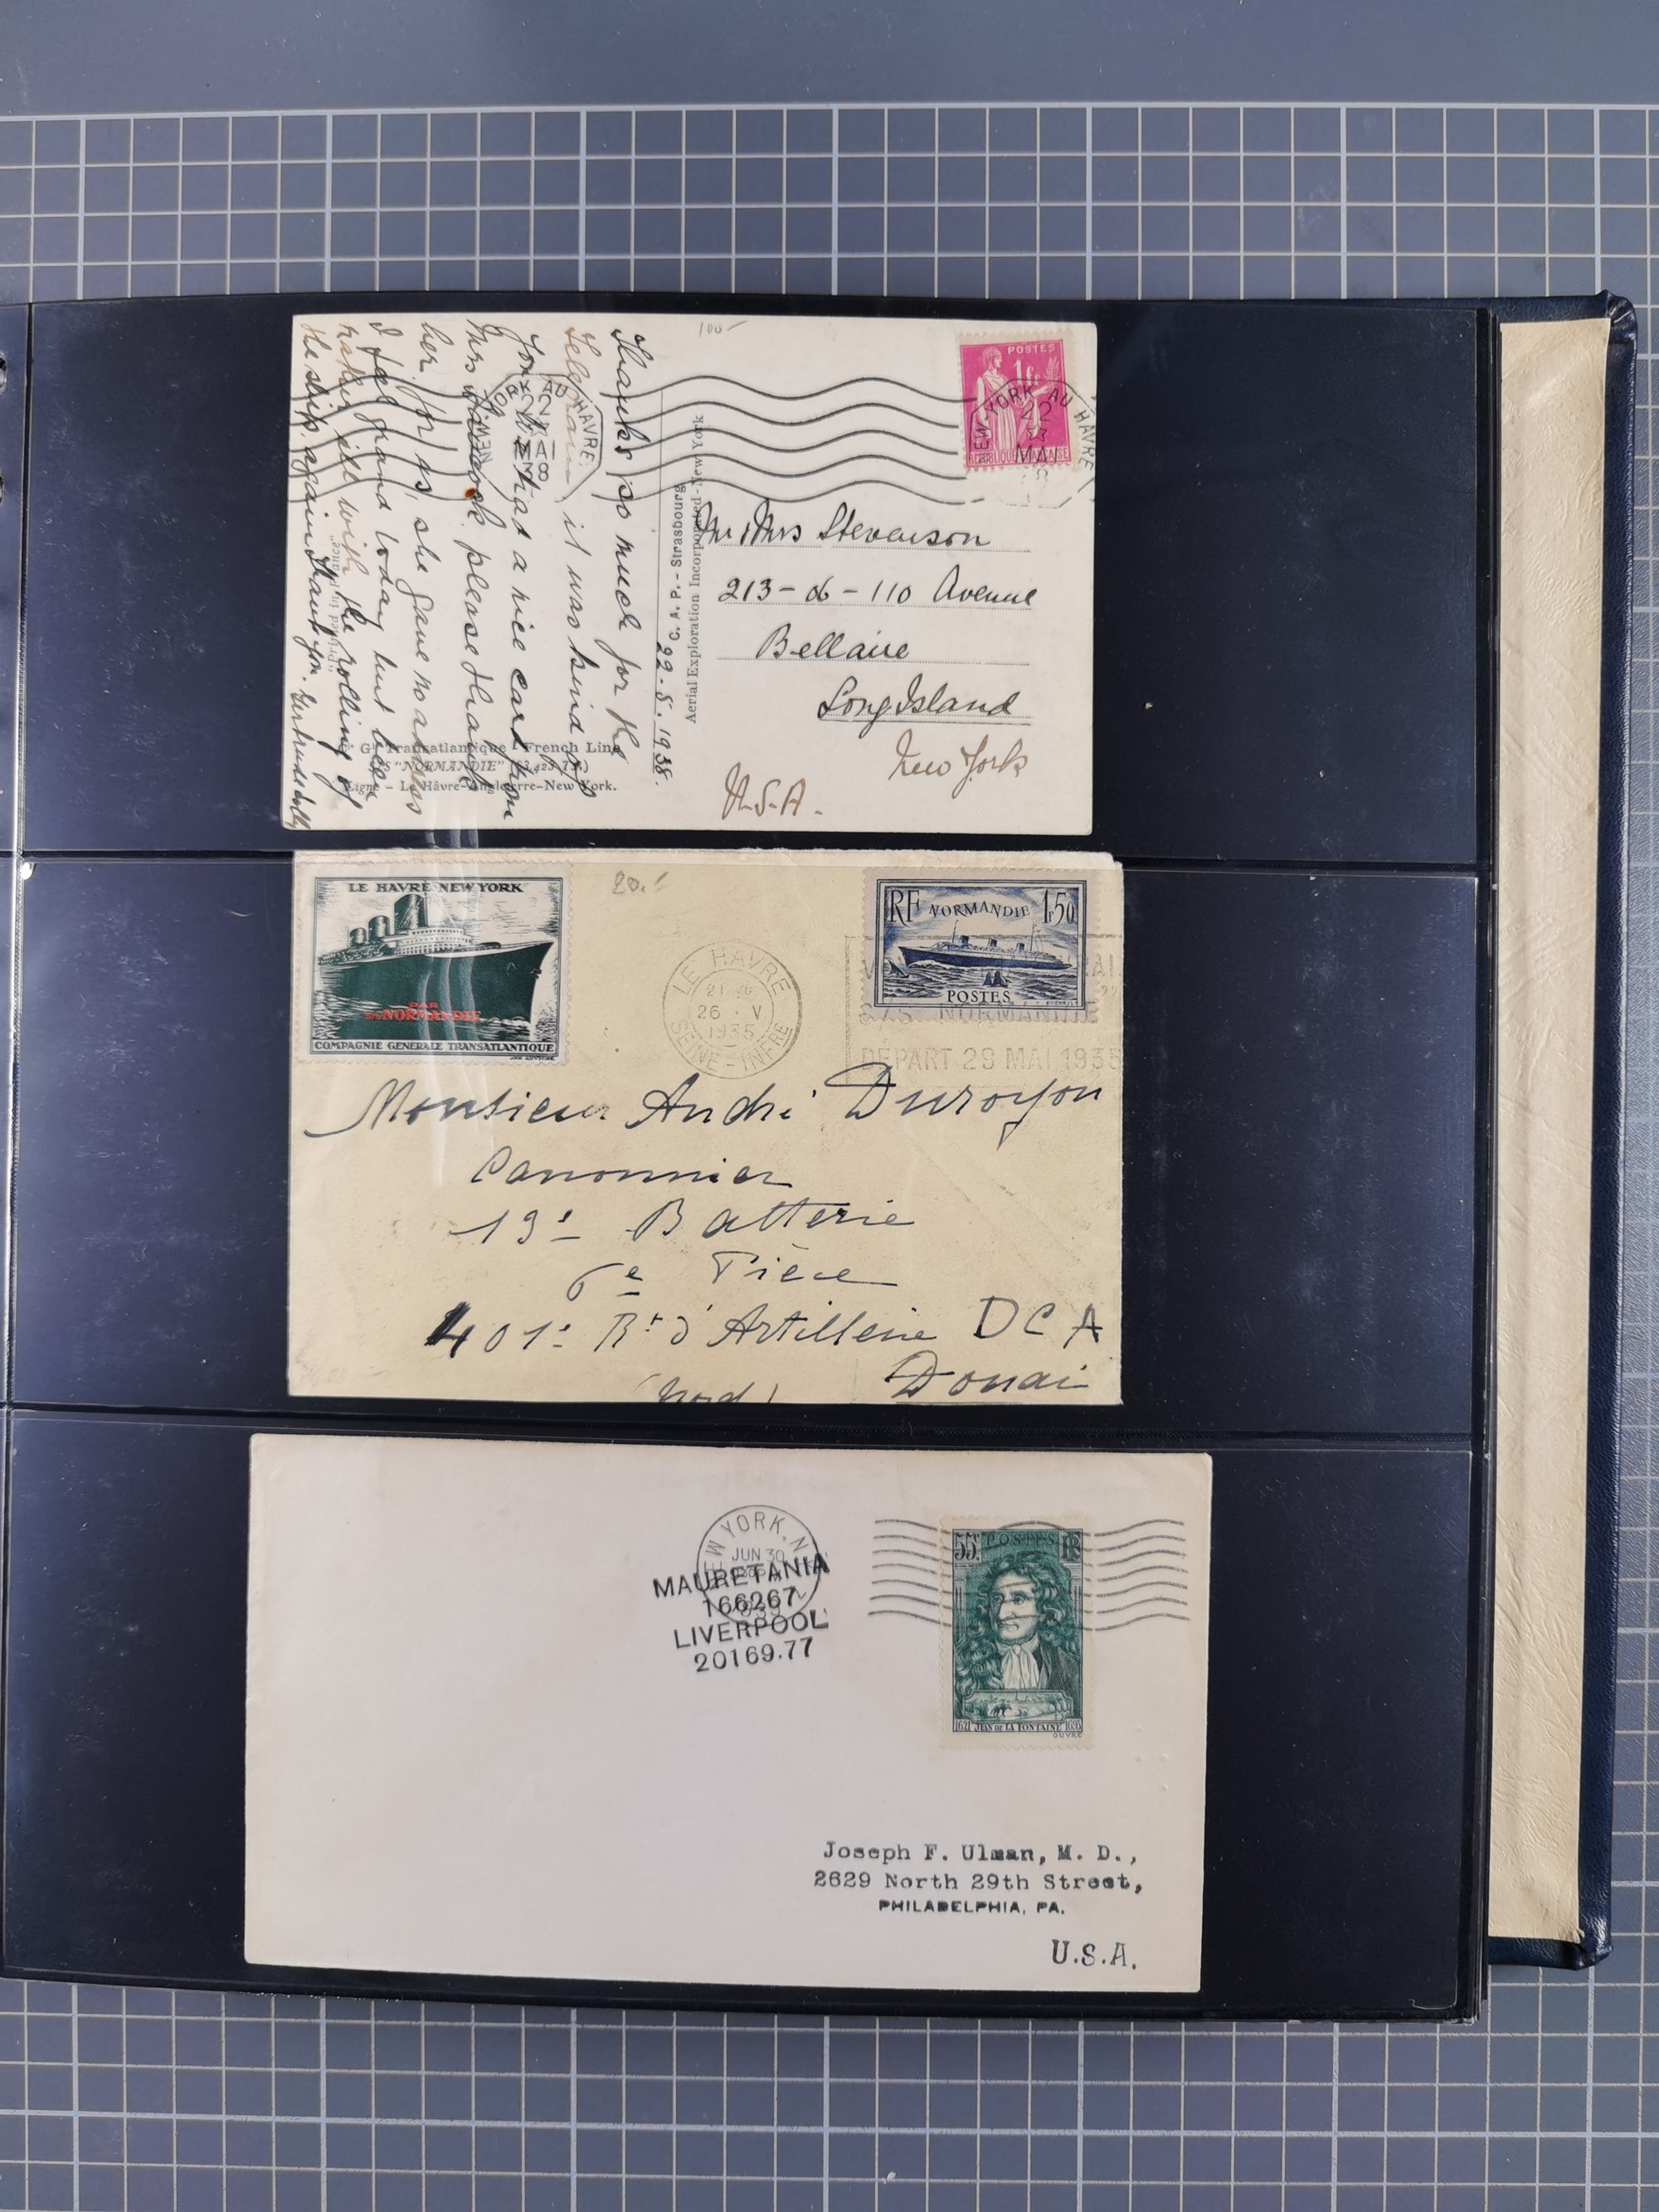 100-
POSTES
1fr
REPUBLIQUE FRANÇAISE
NEW-YORK AU HAVRE
22
MAI
38
Mr & Mrs Stevenson
213-06-110 Avenue
Bellaire
Long Island
New York
U.S.A.
C. A. P. - Strasbourg
Aerial Exploration Incorporated - New York
22.5.1938.
Thanks so much for the
telegram it was kind of
you. We had a nice card from
Mrs please thank
her for us, she gave no address
I feel grand today but been
rather ill with the rolling of
the ship. again thank you.
Cie Gle Transatlantique - French Line
S/S "NORMANDIE" (83,423 Tx.)
Ligne - Le Hâvre-Angleterre-New York.
LE HAVRE NEW YORK
PAR
S/S NORMANDIE
COMPAGNIE GENERALE TRANSATLANTIQUE
20.-
LE HAVRE
21
26 · V
1935
SEINE-INFRE
RF NORMANDIE 1f50
POSTES
S/S NORMANDIE
DÉPART 29 MAI 1935
Monsieur André Duroyon
Canonnier
19e Batterie
6e Pièce
401e Rt d'Artillerie DCA
Douai
(Nord)
NEW YORK, N.Y.
JUN 30
1939
MAURETANIA
166267
LIVERPOOL
20169.77
55c POSTES RF
1621 JEAN DE LA FONTAINE 1695
OUVRÉ
Joseph F. Ulman, M. D.,
2629 North 29th Street,
PHILADELPHIA, PA.
U.S.A.